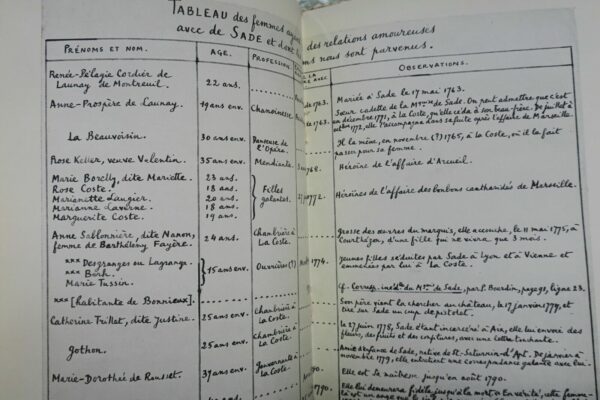 TABLEAU des femmes ayant des relations amoureuses
avec de SADE et dont nous sont parvenus.
PRÉNOMS ET NOM. AGE. PROFESSION. OBSERVATIONS.
Renée-Pélagie Cordier de
Launay de Montreuil. 22 ans. 1763. Mariée à Sade le 17 mai 1763.
Anne-Prospère de Launay. 19 ans env. Chanoinesse. Sœur cadette de la Mise de Sade. On peut admettre que c'est
en décembre 1771, à la Coste, qu'elle céda à son beau-frère. De juillet à
octobre 1772, elle l'accompagna dans sa fuite après l'affaire de Marseille.
La Beauvoisin. 30 ans env. Danseuse de
l'Opéra. Il la mène, en novembre (?) 1765, à la Coste, où il la fait
passer pour sa femme.
Rose Keller, veuve Valentin. 35 ans env. Mendiante. 1768. Héroïne de l'affaire d'Arcueil.
Marie Borelly, dite Mariette. 23 ans.
Rose Coste. 18 ans.
Marianette Laugier. 20 ans.
Marianne Laverne. 18 ans.
Marguerite Coste. 19 ans.
Filles
galantes. 1772. Héroïnes de l'affaire des bonbons cantharidés de Marseille.
Anne Sablonnière, dite Nanon,
femme de Barthélémy Fayère. 24 ans. Chambrière à
La Coste. grosse des œuvres du marquis, elle accouche, le 11 mai 1775, à
Courthézon, d'une fille qui ne vivra que 3 mois.
*** Desgranges ou Lagrange.
*** Berh.
Marie Tussin. 15 ans env. Ouvrières (?) 1774. Jeunes filles séduites par Sade à Lyon et à Vienne et
emmenées par lui à La Coste.
*** [habitante de Bonnieux]. Cf. Corresp. inéd. du Mis de Sade, par P. Bourdin, page 19, ligne 23.
Catherine Trillet, dite Justine. 25 ans env. Chambrière à
La Coste. Son père vient la chercher au château, le 17 janvier 1777, et
tire sur Sade un coup de pistolet.
Gothon. 25 ans env. Chambrière à
La Coste. Le 27 juin 1778, Sade étant incarcéré à Aix, elle lui envoie des
fleurs, des fruits et des confitures, avec une lettre touchante.
Marie-Dorothée de Rousset. 37 ans env. Gouvernante à
La Coste. Amie d'enfance de Sade, native de St-Saturnin-d'Apt. De janvier à
novembre 1779, elle entretient une correspondance galante avec lui.
1790. Elle est sa maîtresse jusqu'en août 1790.
1790. Elle lui demeurera fidèle jusqu'à la mort